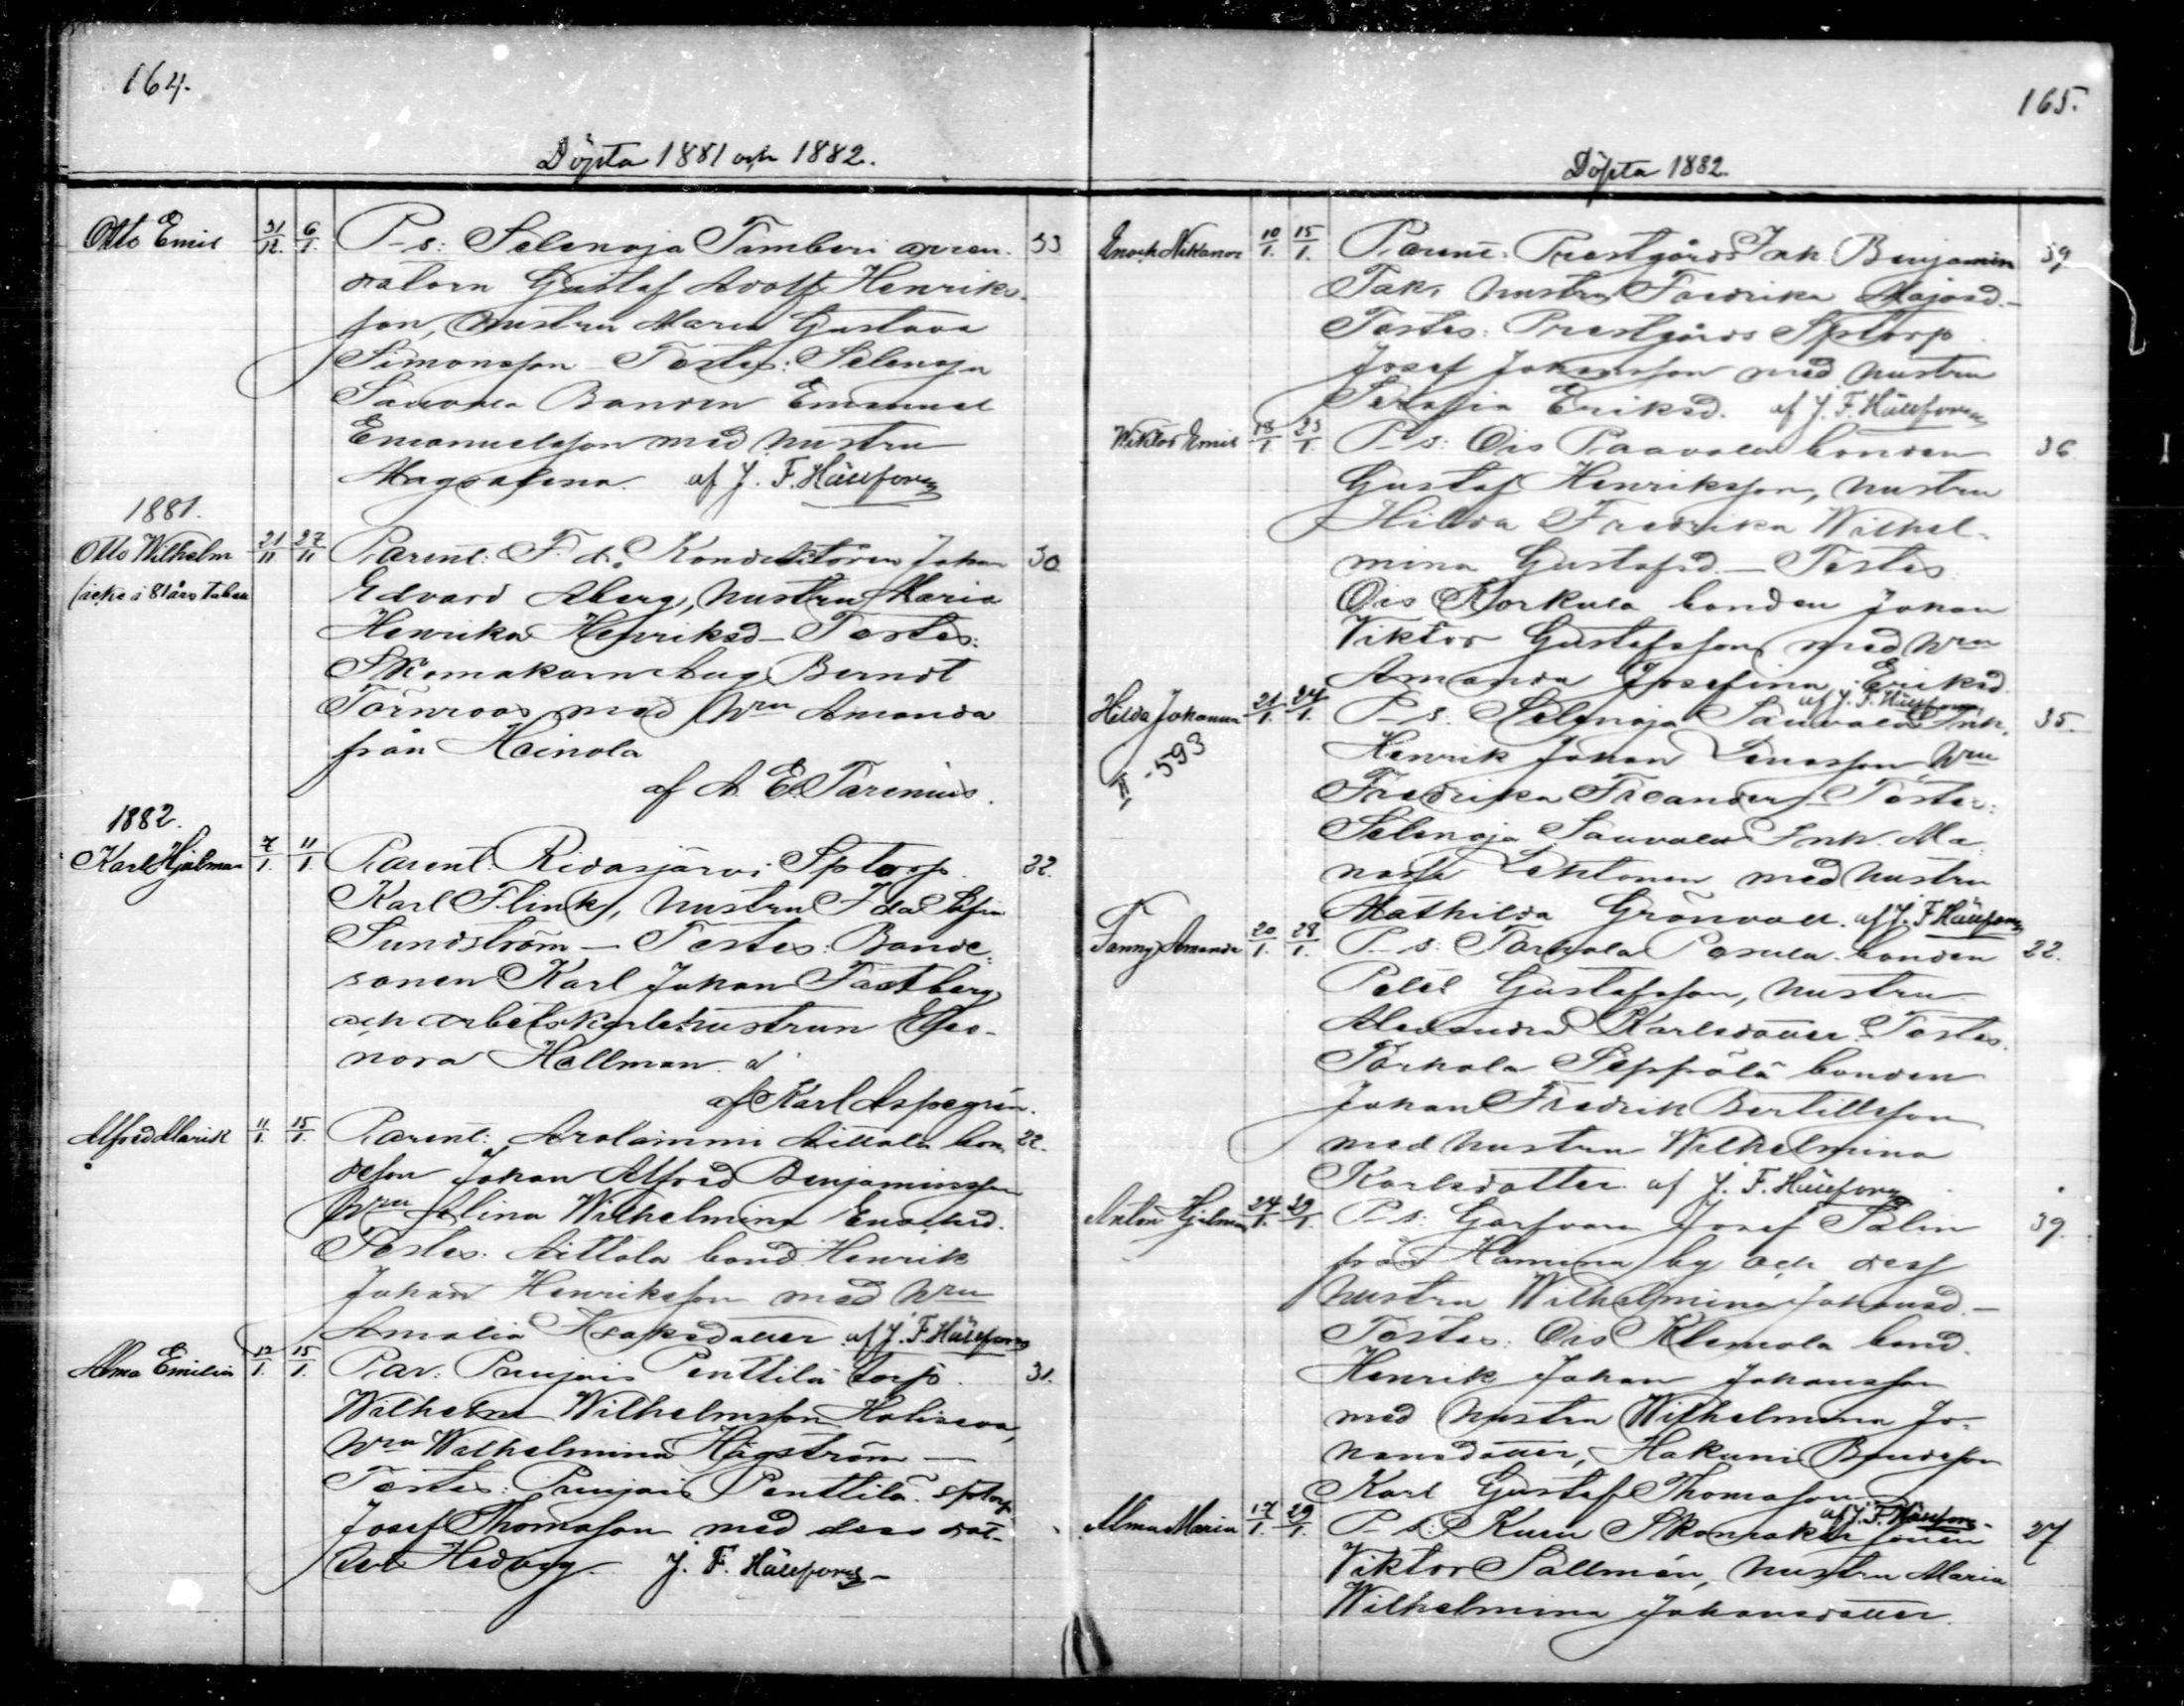 164.
Döpta 1881 och 1882.
Otto Emil 31/12. 6/1. P-s: Selenoja Timberi arren- 33
datorn Gustaf Adolf Henriks-
son, hustru Maria Gustava
Simonsson – Testes: Selenoja
Sauvala Bonden Emanuel
Emanuelsson med hustru
Magdalena. af J. F. Hällfors
1881.
Otto Wilhelm 21/11 27/11 Parent: F. d. Konduktören Johan 30
(icke i 81 års tabell
Edvard Åberg, hustru Maria
Henrika Henriksd – Testes:
Skomakarn Aug. Berndt
Törnroos med hru Amanda
från Heinola
af A. E. Tarenius.
1882.
Karl Hjalmar 7/1. 11/1. Parent: Ridasjärvi Sptorp. 22.
Karl Flink, hustru Ida Sofia
Sundström – Testes: Bonde-
sonen Karl Johan Fastberg
och arbetskarlshustrun Eleo-
nora Hellman.
af Karl Aspegrén.
Alfred Marik 11/1. 15/1. Parent: Arolammi Aittola bon- 22.
deson Johan Alfred Benjaminsson
hru Alina Wilhelmina Enochsd.
Testes: Aittola bond. Henrik
Johan Henriksson med hru
Amalia Isaksdotter af J. F. Hällfors
Alma Emilia 12/1. 15/1. Par. Punjais Penttilä torp. 31.
Wilhelm Wilhelmsson
hru Wilhelmina Hägström –
Testes: Punjais Penttilä sptorp.
Josef Thomasson med dess dot-
ter Hedvig. J. F. Hällfors –
165.
Döpta 1882.
Enoch Nikanor 10/1. 15/1. Parent: Prestgårds Inh. Benjamin 39
Tak, hustru Fredrika Majasd. –
Testes: Prestgårds Sptorp.
Josef Johansson med hustru
Serafia Eriksd. af J. F. Hällfors
Wiktor Emil 18/1 23/1. P-s: Ois Paavola bonden 36
Gustaf Henriksson, hustru
Hilda Fredrika Wilhel-
mina Gustafsd. – Testes
Ois Korkula bonden Johan
Viktor Gustafsson med hru
Amanda Josefina Eriksd.
af J. F. Hällfors
Hilda Johanna 21/1. 24/1. P-s. Selenoja Sauvala Inh. 35.
593
Henrik Johan hru
Fredrika Testes:
Selenoja Sauvala Inh. Ma-
nasse Lehtonen med hustru
Mathilda Grönvall. af J. F. Hällfors
Fanny Amanda 20/1. 28/1. P-s: Torhola bonden 22.
Gustafsson, hustru
Alexandra Karlsdotter. Testes.
Torhola Seppälä bonden
Johan Fredrik Bertillsson
med hustru Wilhelmina
Karlsdotter. af J. F. Hällfors
Anton Hjalmar 24/1. 29/1. P-s: Garfvaren Josef Salin 39.
från Hamina by och dess
hustru Wilhelmina Johansd. –
Testes: Ois Klemola bond.
Henrik Johan Johansson
med hustru Wilhelmina Jo-
hansdotter, Hakuni Bondeson
Karl Gustaf Thomasson
af J. F. Hällfors.
Alma Maria 17/1. 29/1. P-s: Skomakar sonen 27
Viktor Sallmén, hustru Maria
Wilhelmina Johansdotter.